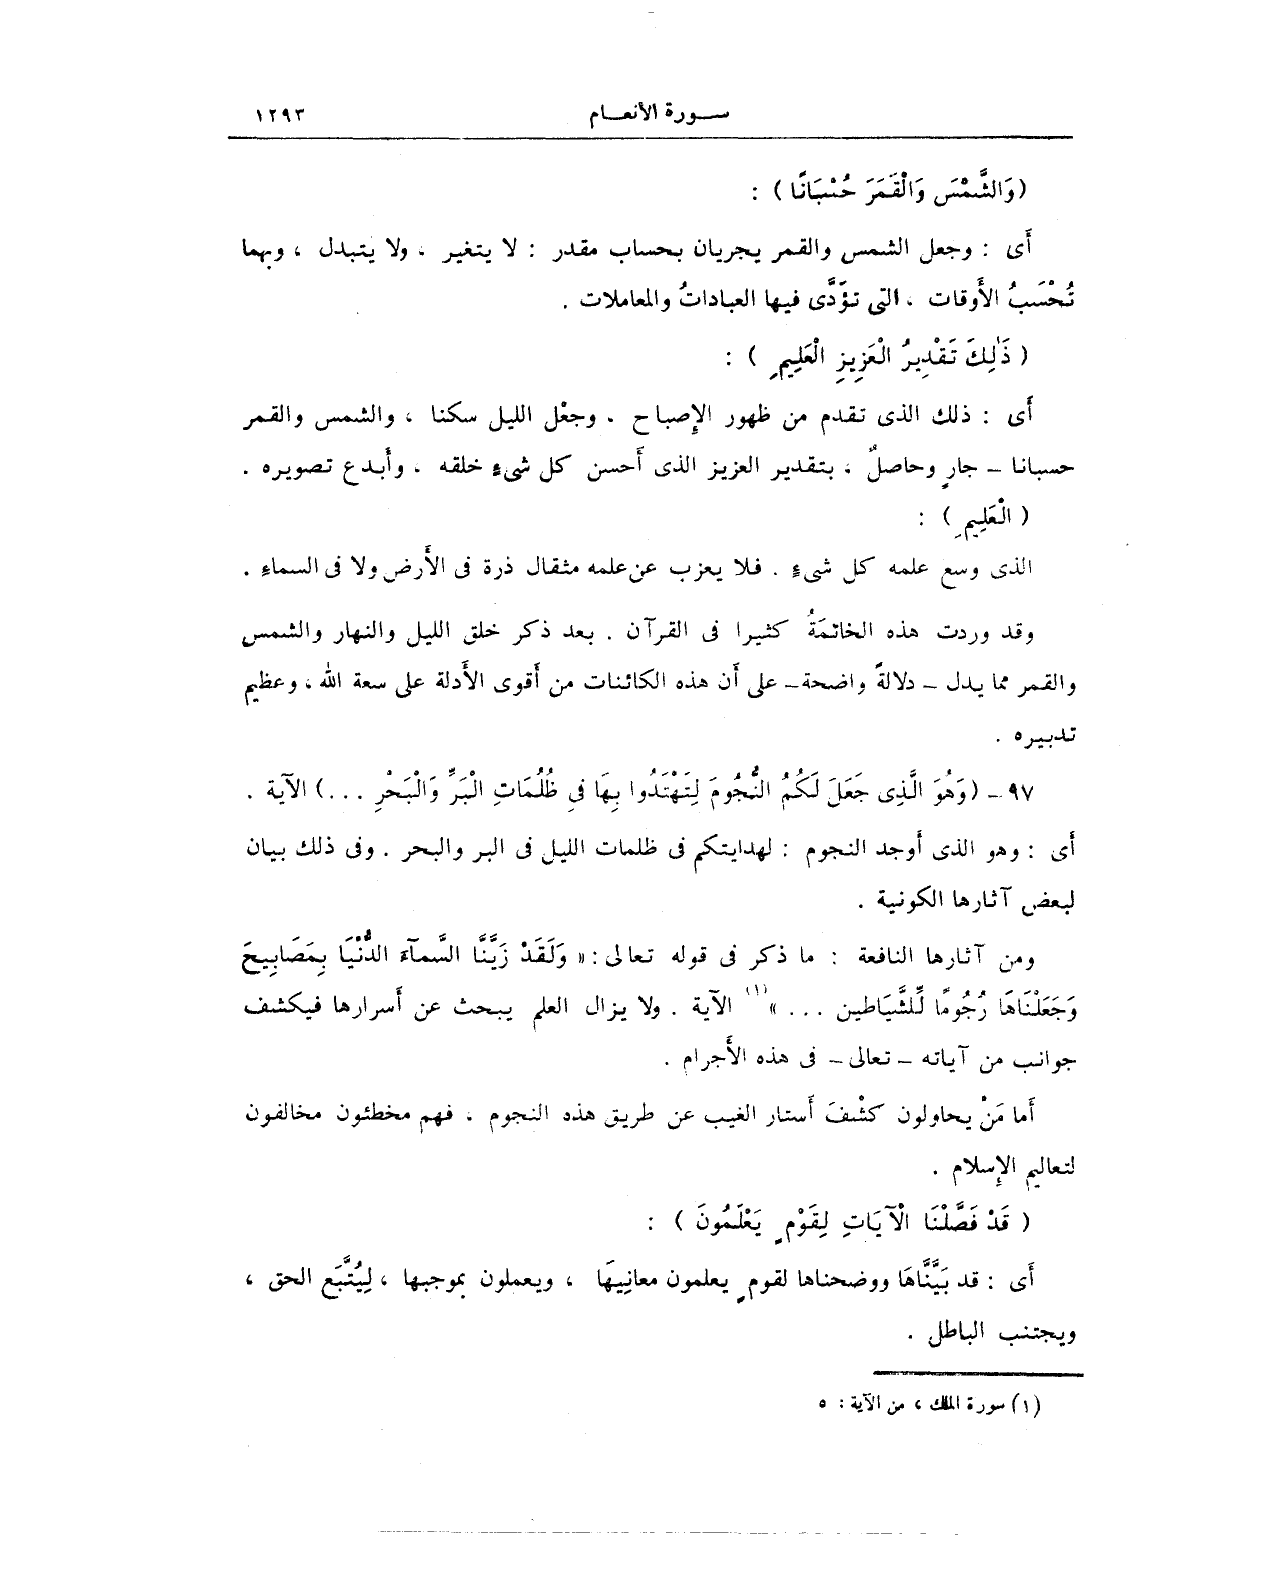 سورة الأنعام ١٢٩٣
(وَالشَّمْسَ وَالْقَمَرَ حُسْبَانًا) :
أَى : وجعل الشمس والقمر يجريان بحساب مقدر : لا يتغير ، ولا يتبدل ، وبهما
تُحْسَبُ الأَوقات ، التى تؤَدَّى فيها العباداتُ والمعاملات .
( ذَٰلِكَ تَقْدِيرُ الْعَزِيزِ الْعَلِيمِ ) :
أَى : ذلك الذى تقدم من ظهور الإِصباح . وجعْل الليل سكنا ، والشمس والقمر
حسبانا – جارٍ وحاصلٌ ، بتقدير العزيز الذى أَحسن كل شىءٍ خلقه ، وأَبدع تصويره .
( الْعَلِيمِ ) :
الذى وسع علمه كل شىءٍ . فلا يعزب عن علمه مثقال ذرة فى الأَرض ولا فى السماءِ .
وقد وردت هذه الخاتمَةُ كثيرا فى القرآن . بعد ذكر خلق الليل والنهار والشمس
والقمر مما يدل – دلالةً واضحة – على أَن هذه الكائنات من أَقوى الأَدلة على سعة الله ، وعظيم
تدبيره .
٩٧ – (وَهُوَ الَّذِى جَعَلَ لَكُمُ النُّجُومَ لِتَهْتَدُوا بِهَا فِى ظُلُمَاتِ الْبَرِّ وَالْبَحْرِ ...) الآية .
أَى : وهو الذى أَوجد النجوم : لهدايتكم فى ظلمات الليل فى البر والبحر . وفى ذلك بيان
لبعض آثارها الكونية .
ومن آثارها النافعة : ما ذكر فى قوله تعالى : « وَلَقَدْ زَيَّنَّا السَّمَآءَ الدُّنْيَا بِمَصَابِيحَ
وَجَعَلْنَاهَا رُجُومًا لِّلشَّيَاطين ... » (١) الآية . ولا يزال العلم يبحث عن أَسرارها فيكشف
جوانب من آياته – تعالى – فى هذه الأَجرام .
أَما مَنْ يحاولون كشْفَ أَستار الغيب عن طريق هذه النجوم ، فهم مخطئون مخالفون
لتعاليم الإِسلام .
( قَدْ فَصَّلْنَا الْآيَاتِ لِقَوْمٍ يَعْلَمُونَ ) :
أَى : قد بَيَّنَّاهَا ووضحناها لقومٍ يعلمون معانِيهَا ، ويعملون بموجبها ، لِيُتَّبَع الحق ،
ويجتنب الباطل .
(١) سورة الملك ، من الآية : ٥